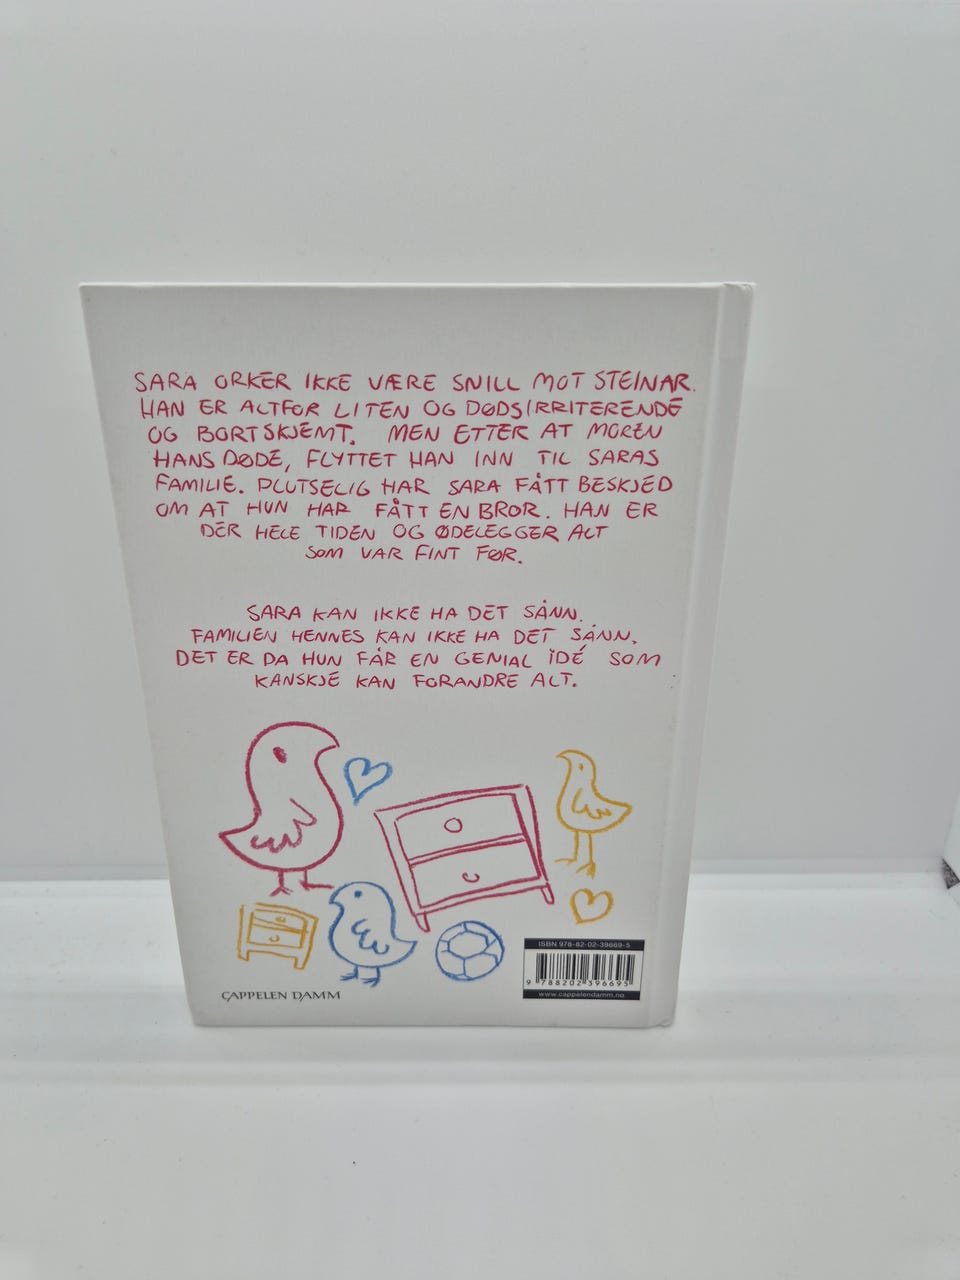 SARA ORKER IKKE VÆRE SNILL MOT STEINAR.
HAN ER ALTFOR LITEN OG DØDSIRRITERENDE
OG BORTSKJEMT. MEN ETTER AT MOREN
HANS DØDE, FLYTTET HAN INN TIL SARAS
FAMILIE. PLUTSELIG HAR SARA FÅTT BESKJED
OM AT HUN HAR FÅTT EN BROR. HAN ER
DER HELE TIDEN OG ØDELEGGER ALT
SOM VAR FINT FØR.
SARA KAN IKKE HA DET SÅNN.
FAMILIEN HENNES KAN IKKE HA DET SÅNN.
DET ER DA HUN FÅR EN GENIAL IDÉ SOM
KANSKJE KAN FORANDRE ALT.
ISBN 978-82-02-39669-5
9 788202 396695
www.cappelendamm.no
CAPPELEN DAMM